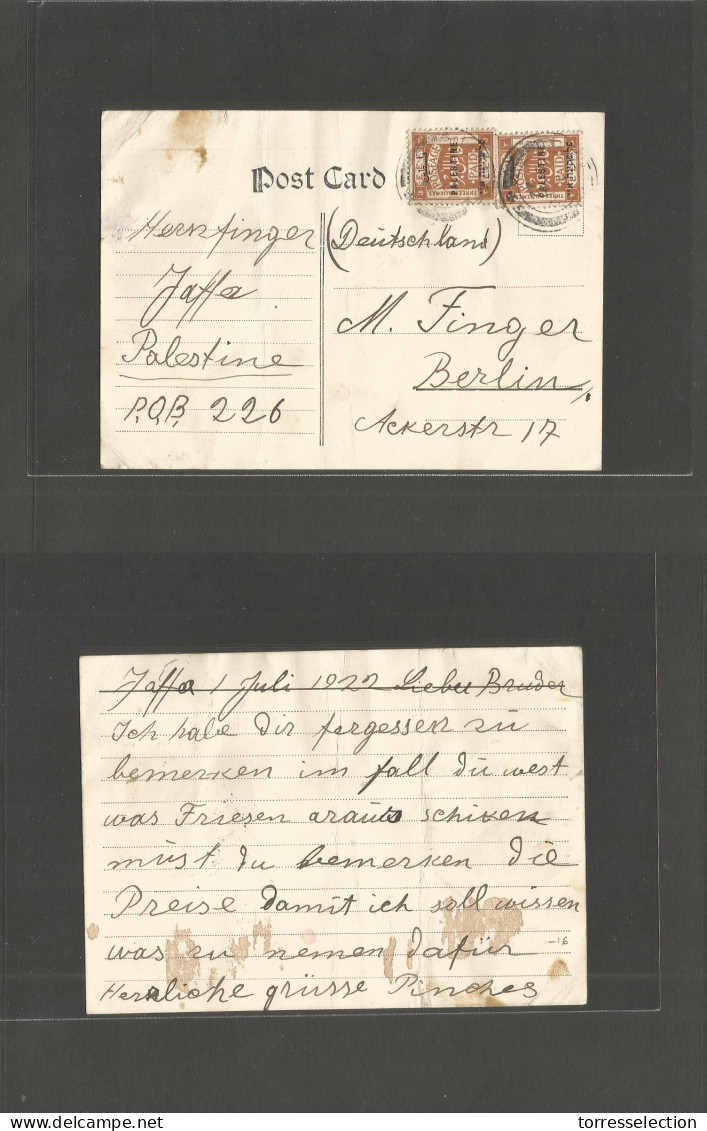 Post Card
PALESTINE
PALESTINE
Herrnfinger
Jaffa
Palestine
P.O.B. 226
(Deutschland)
M. Finger
Berlin
Ackerstr 17
Jaffa 1 Juli 1922 Lieber Bruder
Ich habe dir fergessen zu
bemerken im fall du west
was Friesen araus schiken
müst du bemerken die
Preise damit ich soll wissen
was zu nemen dafür
-16
Herzliche grüsse Pinches
torresselection